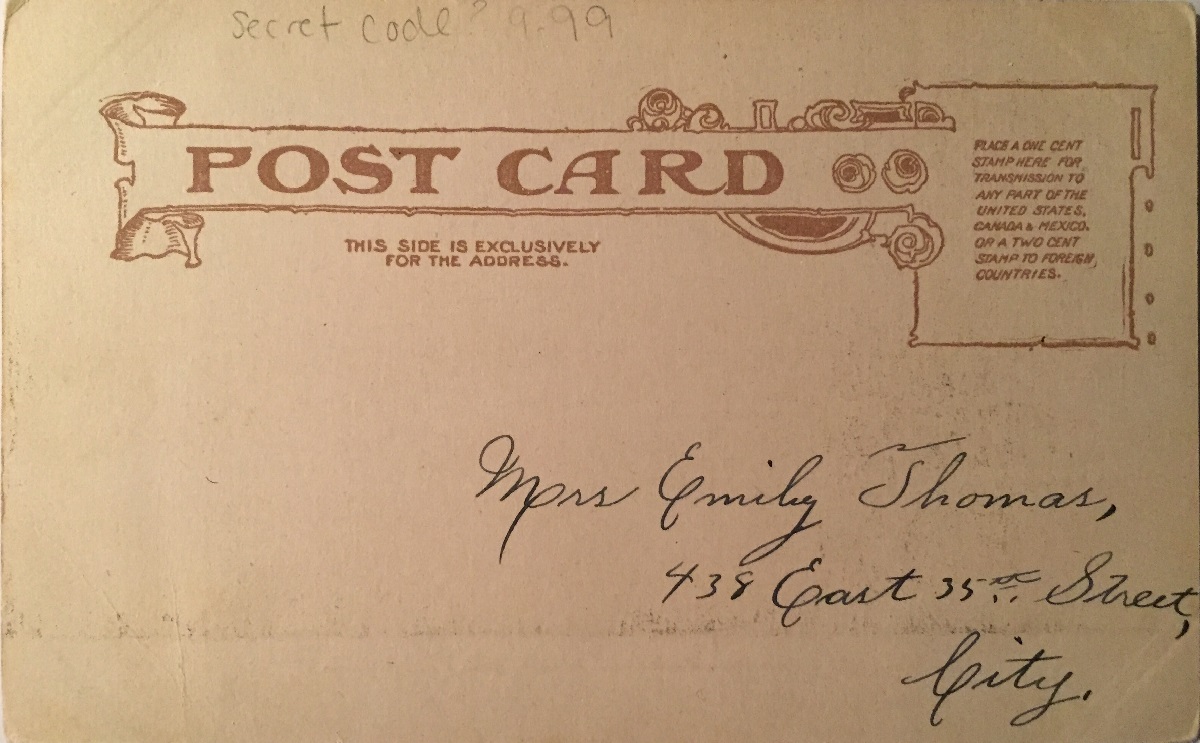 Secret Code? 9.99
POST CARD
THIS SIDE IS EXCLUSIVELY
FOR THE ADDRESS.
PLACE A ONE CENT
STAMP HERE FOR
TRANSMISSION TO
ANY PART OF THE
UNITED STATES,
CANADA & MEXICO.
OR A TWO CENT
STAMP TO FOREIGN
COUNTRIES.
Mrs Emily Thomas,
438 East 35th Street,
City.